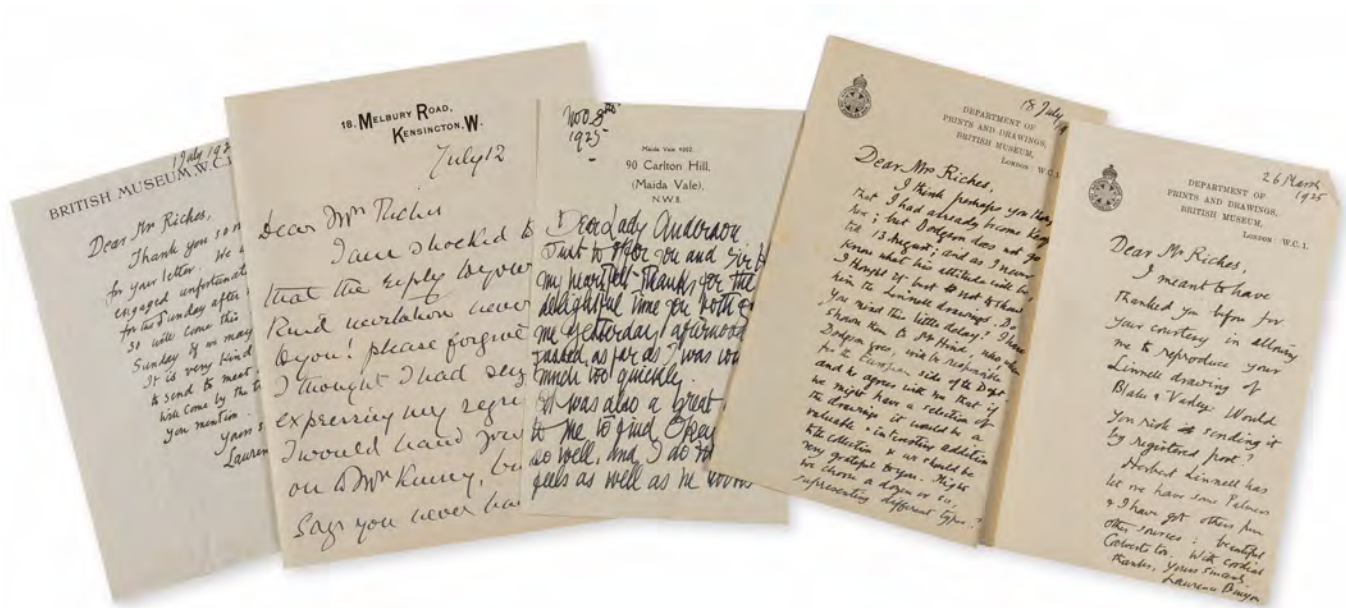 1 July 192
BRITISH MUSEUM, W.C.1
Dear Mr Riches,
Thank you so m
for your letter. We a
engaged unfortunat
for the Sunday after,
so will come this
Sunday if we may
It is very kind
to send to meet
will come by the t
you mention.
Yours s
Lauren
18. MELBURY ROAD,
KENSINGTON. W.
July 12
Dear Mrs Riches
I am shocked t
that the reply to your
kind invitation never
to you! please forgive
I thought I had
expressing my regre
I would hand your
on to Mr
Says you never ha
Nov 8th
1925
Maida Vale
90 Carlton Hill,
(Maida Vale),
N.W.8.
Dear Lady Anderson
Just to offer you and Sir
my heartfelt thanks for the
delightful time you both
me yesterday afternoon
passed, as far as I was con
much too quickly.
It was also a great
to me to find
so well, and I do
feels as well as he
18 July
DEPARTMENT OF
PRINTS AND DRAWINGS,
BRITISH MUSEUM,
LONDON: W.C.1.
Dear Mrs Riches,
I think perhaps you
that I had already become Keep
here; but Dodgson does not go
till 13 August; and as I never
know what his attitude will be,
I thought it best not to show
him the Linnell drawings. Do
you mind this little delay? I have
shown them to Mr Hind, who, when
Dodgson goes, will be responsible
for the European side of the Dept
and he agrees with me that if
we might have a selection of
the drawings it would be a
valuable & interesting addition
to the collection & we should be
very grateful to you. Might
we choose a dozen or so,
representing different types?
26 March
1925
DEPARTMENT OF
PRINTS AND DRAWINGS,
BRITISH MUSEUM,
LONDON: W.C.1.
Dear Mr Riches,
I meant to have
thanked you before for
your courtesy in allowing
me to reproduce your
Linnell drawing of
Blake & Varley. Would
you risk sending it
by registered post?
Herbert Linnell has
let me have some Palmers
& I have got others from
other sources: beautiful
Calverts too. With cordial
thanks, yours sincerely
Laurence Binyon